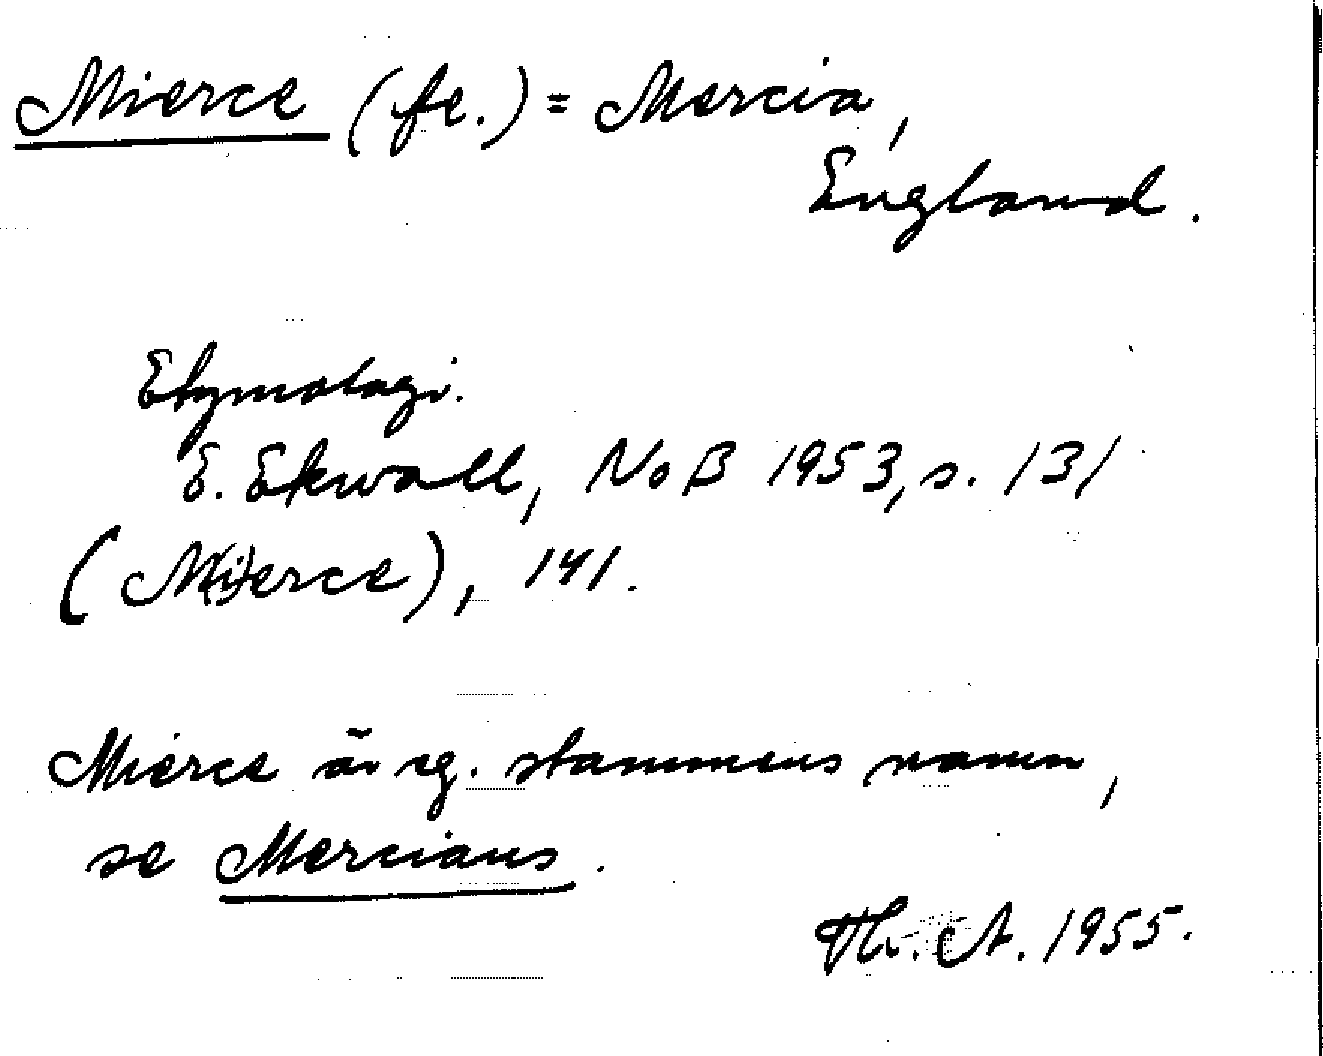 Mierce (fe.) = Mercia,
England.
Etymologi.
E. Ekwall, NoB 1953, s. 131
(M(i)erce), 141.
Mierce är eg. stammens namn,
se Mercians.
Th. A. 1955.